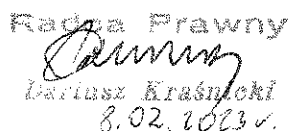 Radca Prawny
Dariusz Kraśnicki
8.02.2023 r.